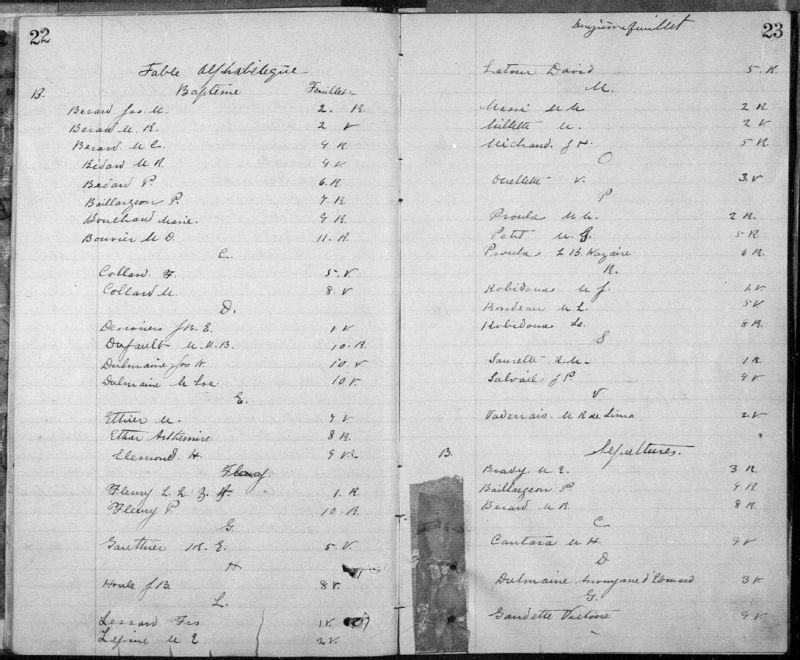 22
Table Alphabétique
B. Baptême Feuillet
Berard Jos. M. 2. R
Berard M. R. 2 V
Berard M. C. 4 R
Bédard M. R. 4 V
Bedard P. 6. R.
Baillargeon P. 7 R.
Bouchard Marie. 9 R.
Bouvier M. O. 11. R.
C.
Collard F. 5. V
Collard M. 8. V.
D.
J. B. E. 1 V
Dufault M. M. B. 10. R.
Dulmaine Jos H. 10. V
Dulmaine M 10 V.
E.
Ethier M. 7 V.
Arthemise 8 R.
H. 9
Fleury
Fleury L. L. Z. 1. R
Fleury P. 10. R
G.
Gauthier M. E. 5. V.
H
Houle J. B. 8 V.
L.
Lessard Frs 1 V.
Lépine M E 2 V.
Douzième feuillet
23
Latour David 5. R.
M.
Massé M M 2 R.
Millette M. 2 V
Michaud J. H. 5 R.
O
Ouellette V. 3. V
P
Proulx M. M. 2 R.
Petit M. G. 5 R
Proulx L. B. 6 R
R.
Robidoux M J. 1. V
M L. 5 V
Robidoux Ls. 8 R.
S
R. M. 1 R
Salvail J P. 4 V
V
Vadenais M R de Lima 2 V
B. Sépultures.
Brady M. E. 3 R.
Baillargeon P 4 R
Berard M R. 8 R.
C
Cantara M H. 9 V
D
Dulmaine Anonyme d'Edouard 3 V.
G.
Gaudette Victoire 9 V.